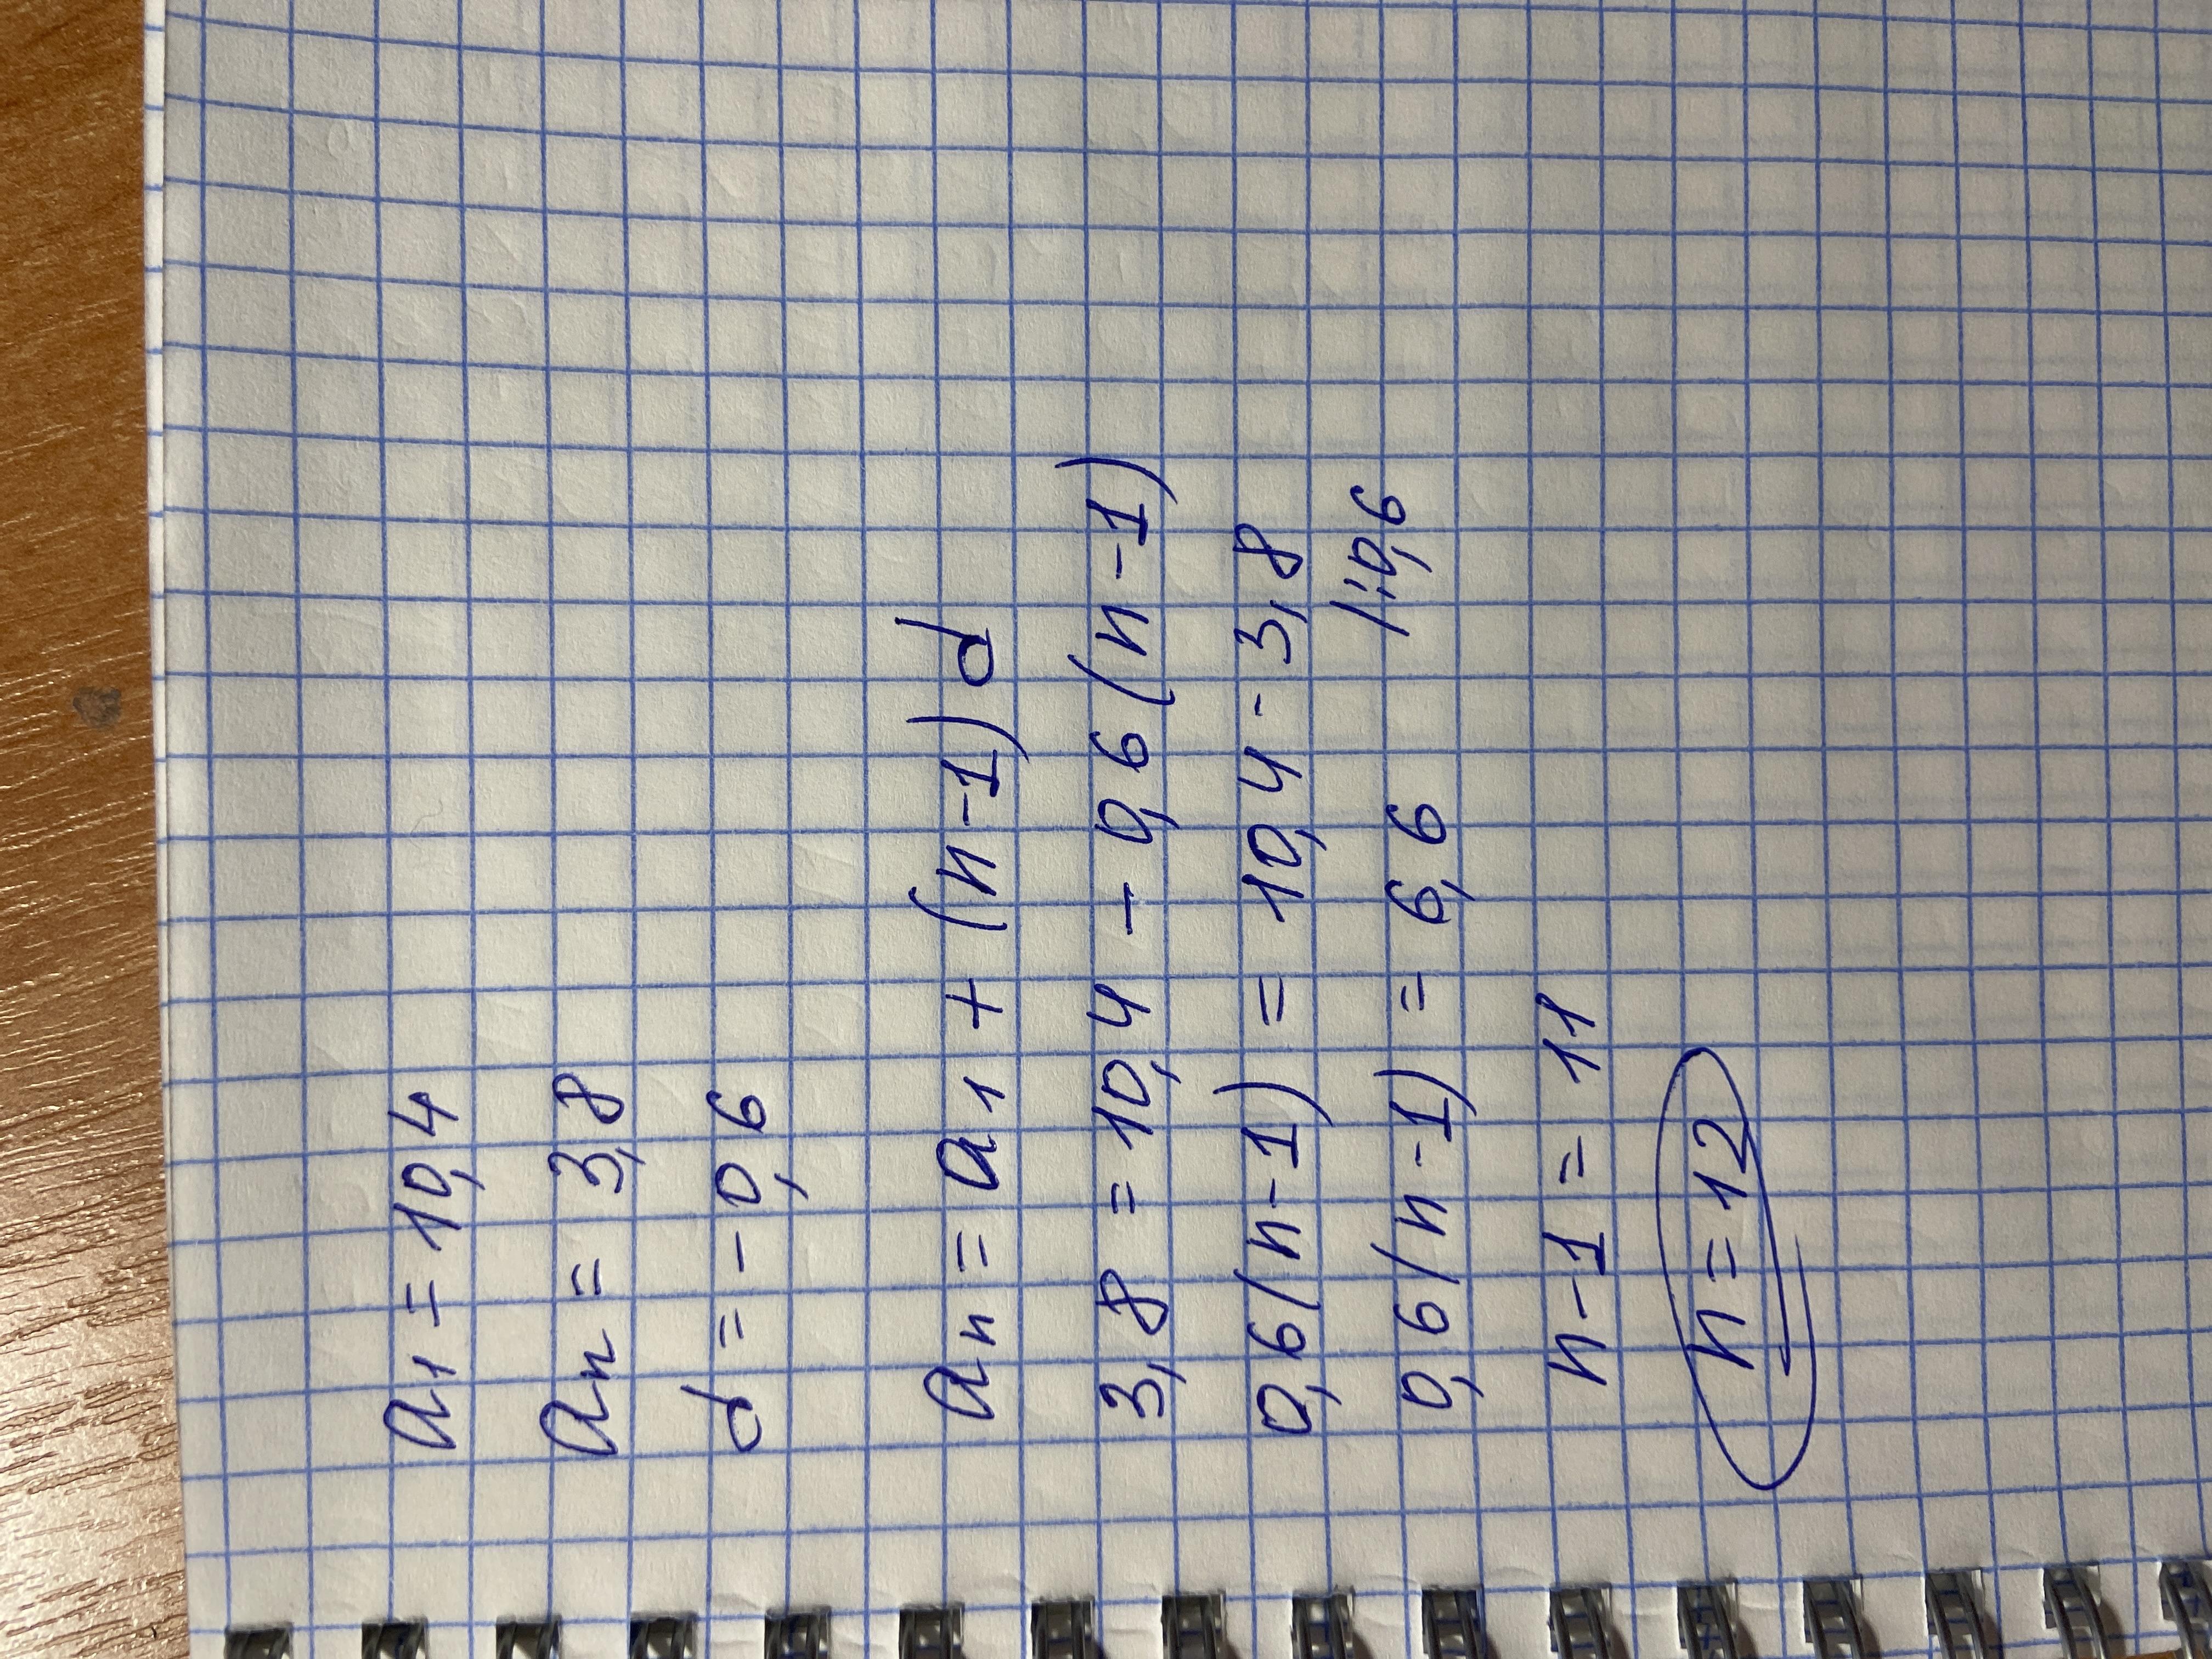 a₁ = 10,4
aₙ = 3,8
d = -0,6
aₙ = a₁ + (n-1)d
3,8 = 10,4 - 0,6(n-1)
0,6(n-1) = 10,4 - 3,8
0,6(n-1) = 6,6 |:0,6
n-1 = 11
n = 12